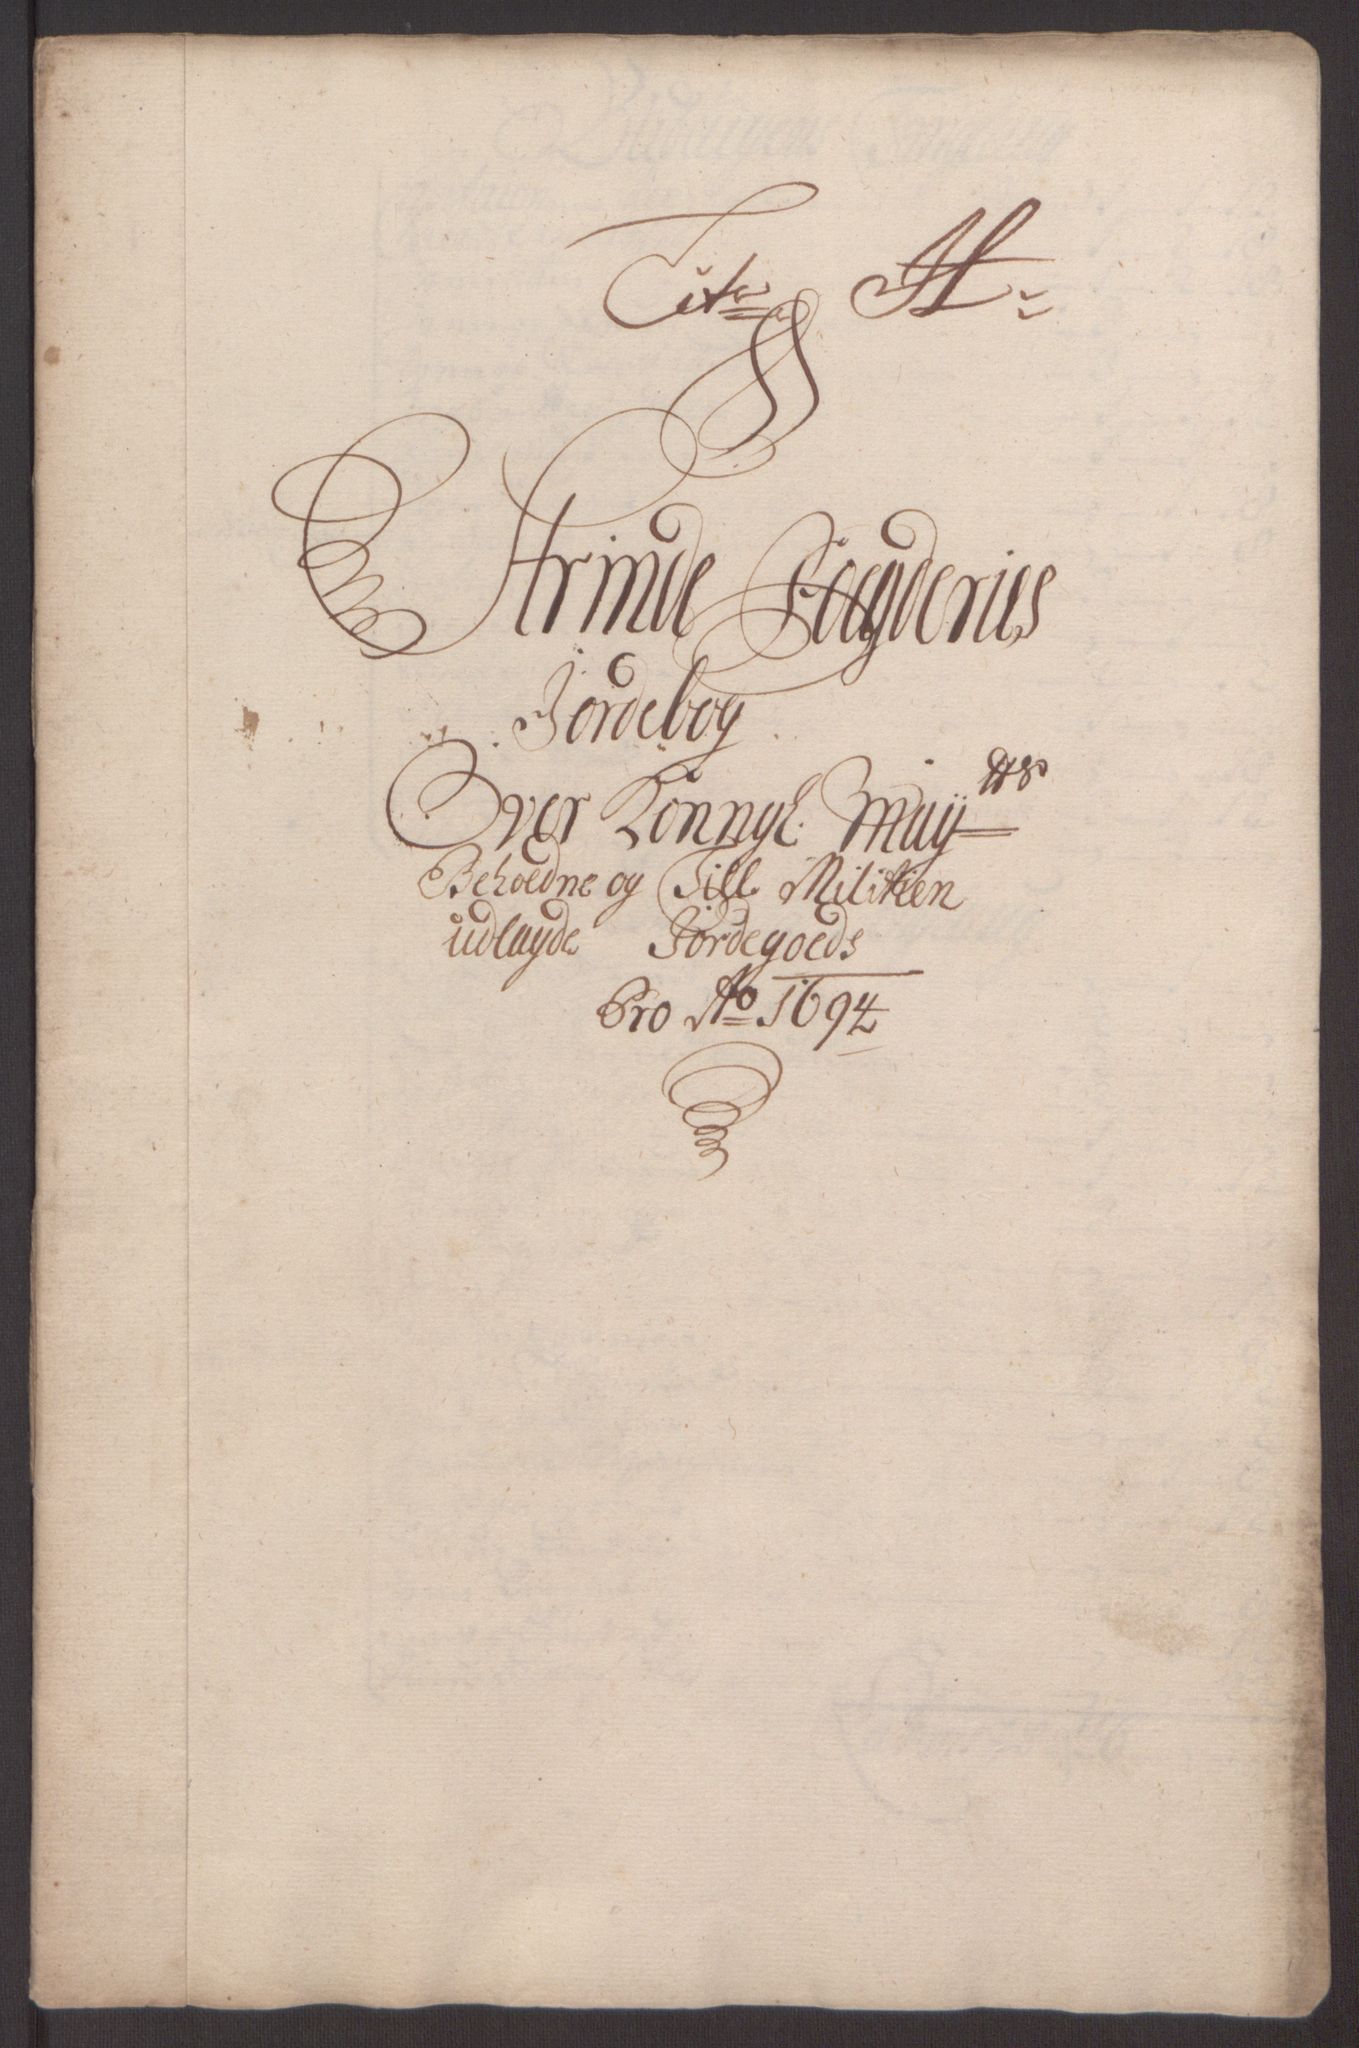 Litr A
Strinde Fogderies
Jordebog
Over Konngl. May tts
Beholdne og Till Militien
udlagde Jordegoeds
Pro Ao 1694